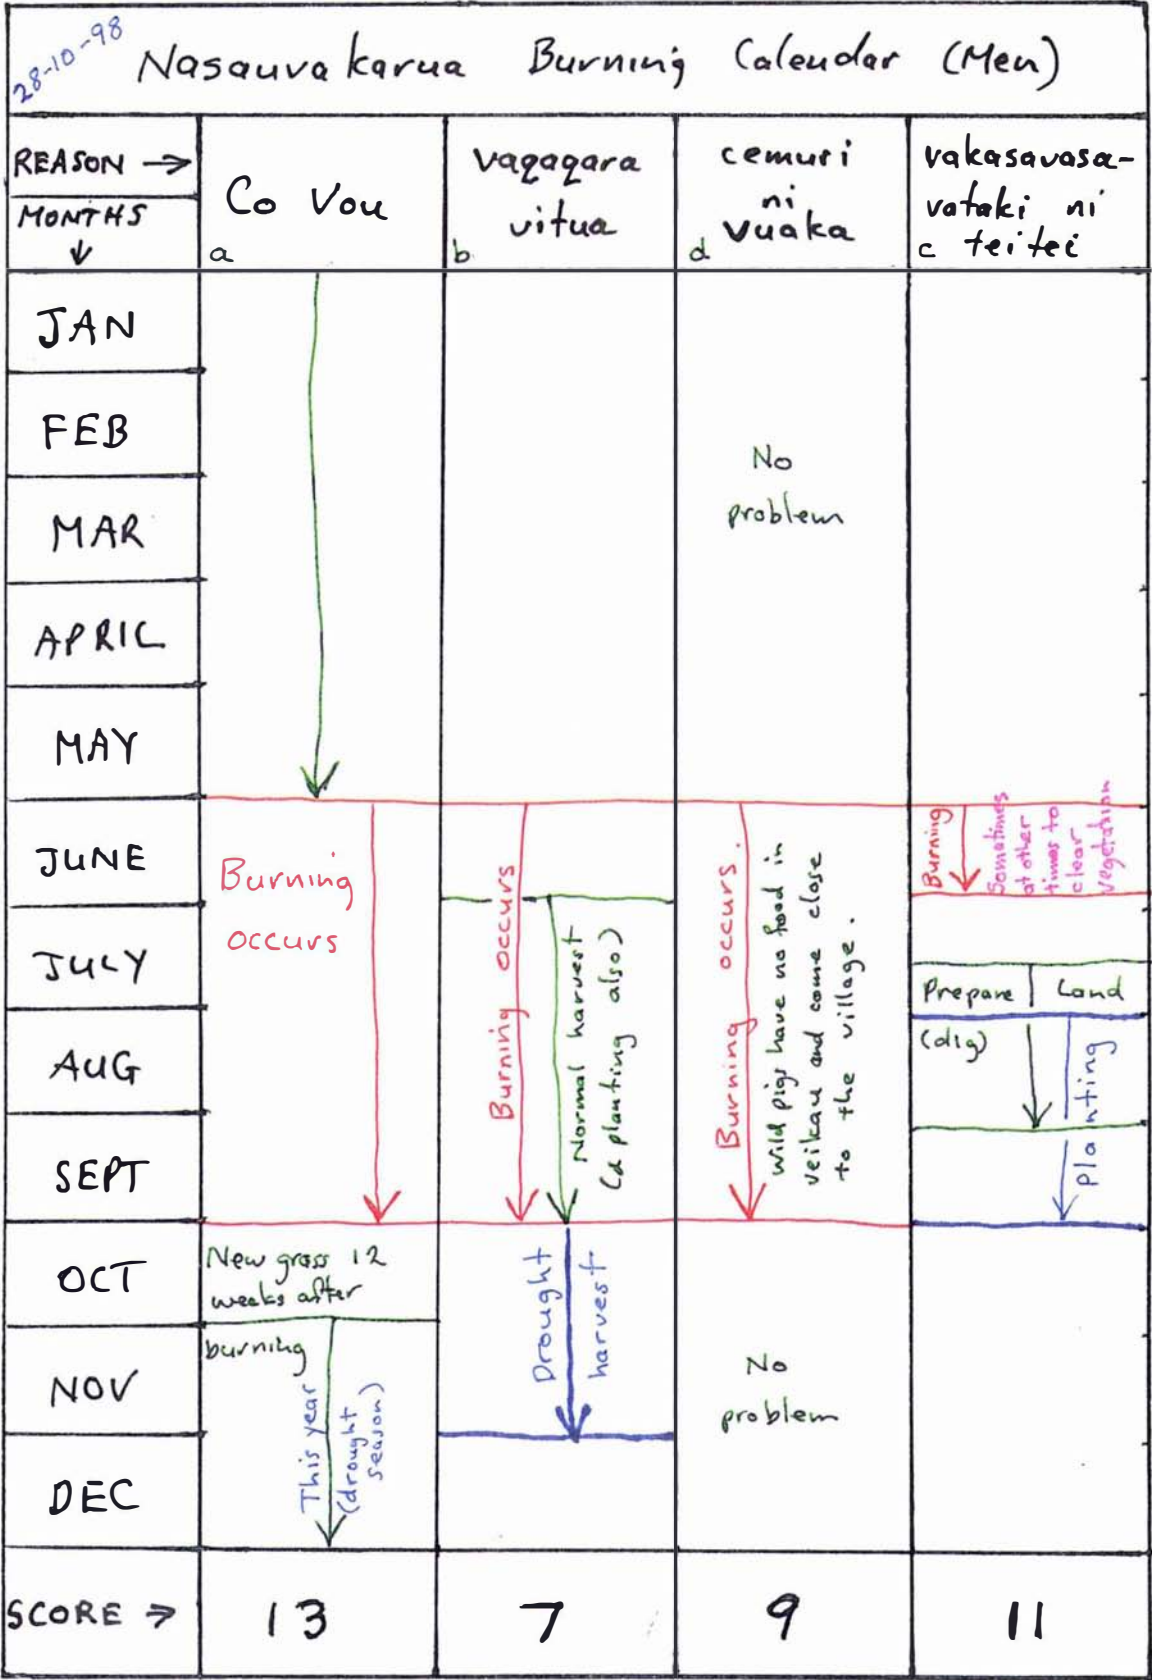 28-10-98
Nasauvakarua Burning Calendar (Men)
REASON →
MONTHS
↓
Co Vou
a
vaqaqara
vitua
b
cemuri
ni
vuaka
d
vakasavasa-
vataki ni
teitei
c
JAN
FEB
MAR
APRIL
MAY
JUNE
JULY
AUG
SEPT
OCT
NOV
DEC
Burning
occurs
New grass 12
weeks after
burning
This year
(drought
season)
Burning occurs
Normal harvest
(& planting also)
Drought
harvest
No
problem
Burning occurs.
Wild pigs have no food in
veikau and come close
to the village.
No
problem
Burning
Sometimes
at other
times to
clear
vegetation
Prepare Land
(dig)
planting
SCORE →
13
7
9
11